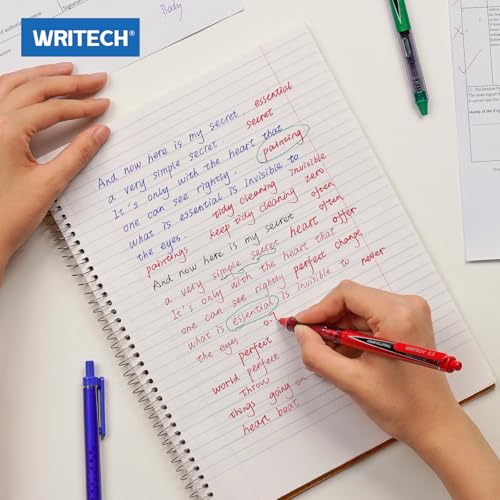 WRITECH®
Body
And now here is my secret essential
a very simple secret secret
It's only with the heart that
one can see rightly. painting
what is essential is invisible to
the eyes. tidy cleaning invisible
paintings keep tidy cleaning zero
And now here is my secret often
a very simple secret heart offer
It's only with the heart that
one can see rightly perfect change
What is essential is invisible to never
the eyes
perfect
world perfect
throw
things going on
hear beat